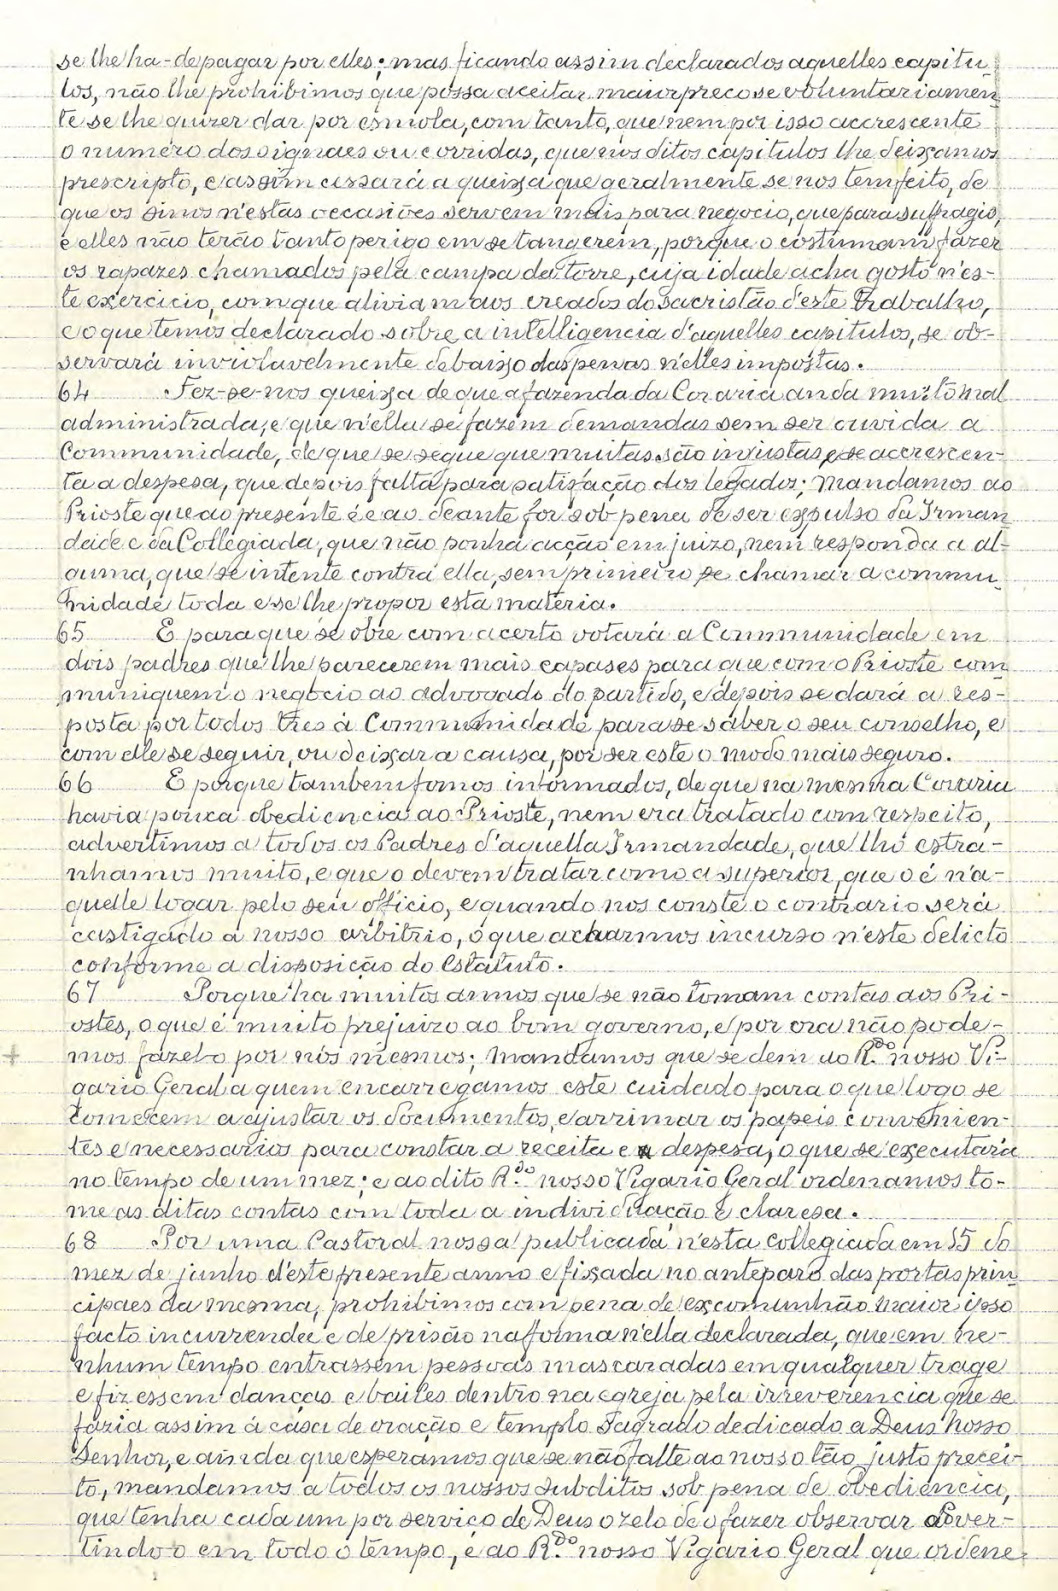 se lhe ha-de pagar por elles; mas ficando assim declarados aquelles capitu-
los, não lhe prohibimos que possa aceitar maior preco se voluntariamen-
te se lhe quizer dar por esmola, com tanto, que nem por isso accrescente
o numero dos signaes ou corridas, que nos ditos capitulos lhe deixamos
prescripto, e assim cessará a queixa que geralmente se nos tem feito, de
que os sinos n'estas occasiões servem mais para negocio, que para suffragio,
e elles não terão tanto perigo em se tangerem, porque o costumam fazer
os rapazes chamados pela campa da torre, cuja idade acha gosto n'es-
te exercicio, com que aliviam aos creados do sacristão d'este trabalho,
e o que temos declarado sobre a intelligencia d'aquelles capitulos, se ob-
servará inviolavelmente debaixo das penas n'elles impostas.
64 Fez-se-nos queixa de que a fazenda da Coraria anda muito mal
administrada, e que n'ella se fazem demandas sem ser ouvida a
Communidade, de que se segue que muitas são injustas, e se accrescen-
ta a despesa, que depois falta para satisfação dos legados; Mandamos ao
Prioste que ao presente é e ao deante for sob pena de ser expulso da Irman
dade e da Collegiada, que não ponha acção em juizo, nem responda a al-
guma, que se intente contra ella, sem primeiro se chamar a commu-
nidade toda e se lhe propor esta materia.
65 E para que se obre com acerto votará a Communidade em
dois padres que lhe parecerem mais capases para que com o Prioste com-
muniquem o negocio ao advogado do partido, e depois se dará a res-
posta por todos tres á Communidade para se saber o seu conselho, e
com elle se seguir, ou deixar a causa, por ser este o modo mais seguro.
66 E porque tambem fomos informados, de que na mesma Coraria
havia pouca obediencia ao Prioste, nem era tratado com respeito,
advertimos a todos os Padres d'aquella Irmandade, que lho estra-
nhamos muito, e que o devem tratar como a superior, que o é n'a-
quelle logar pelo seu officio, e quando nos conste o contrario será
castigado a nosso arbitrio, o que acharmos incurso n'este delicto
conforme a disposição do Estatuto.
67 Porque ha muitos annos que se não tomam contas aos Pri-
ostes, o que é muito prejuizo ao bom governo, e por ora não pode-
mos fazelo por nós mesmos; Mandamos que se dem ao R.do nosso Vi-
gario Geral a quem encarregamos este cuidado para o que logo se
comecem a ajustar os documentos, e arrimar os papeis convenien-
tes e necessarios para constar a receita e a despesa, o que se executará
no tempo de um mez; e ao dito R.do nosso Vigario Geral ordenamos to-
me as ditas contas com toda a individuação e claresa.
68 Por uma Pastoral nossa publicada n'esta collegiada em 15 do
mez de junho d'este presente anno e fixada no anteparo das portas prin-
cipaes da mesma, prohibimos com pena de excomunhão maior ipso
facto incurrendæ e de prisão na forma n'ella declarada, que em ne-
nhum tempo entrassem pessoas mascaradas em qualquer trage
e fizessem danças e bailes dentro na egreja pela irreverencia que se
fazia assim á casa de oração e templo Sagrado dedicado a Deus Nosso
Senhor, e ainda que esperamos que se não falte ao nosso tão justo precei-
to, mandamos a todos os nossos subditos sob pena de obediencia,
que tenha cada um por serviço de Deus o zelo de o fazer observar adver-
tindo-o em todo o tempo, e ao R.do nosso Vigario Geral que ordene